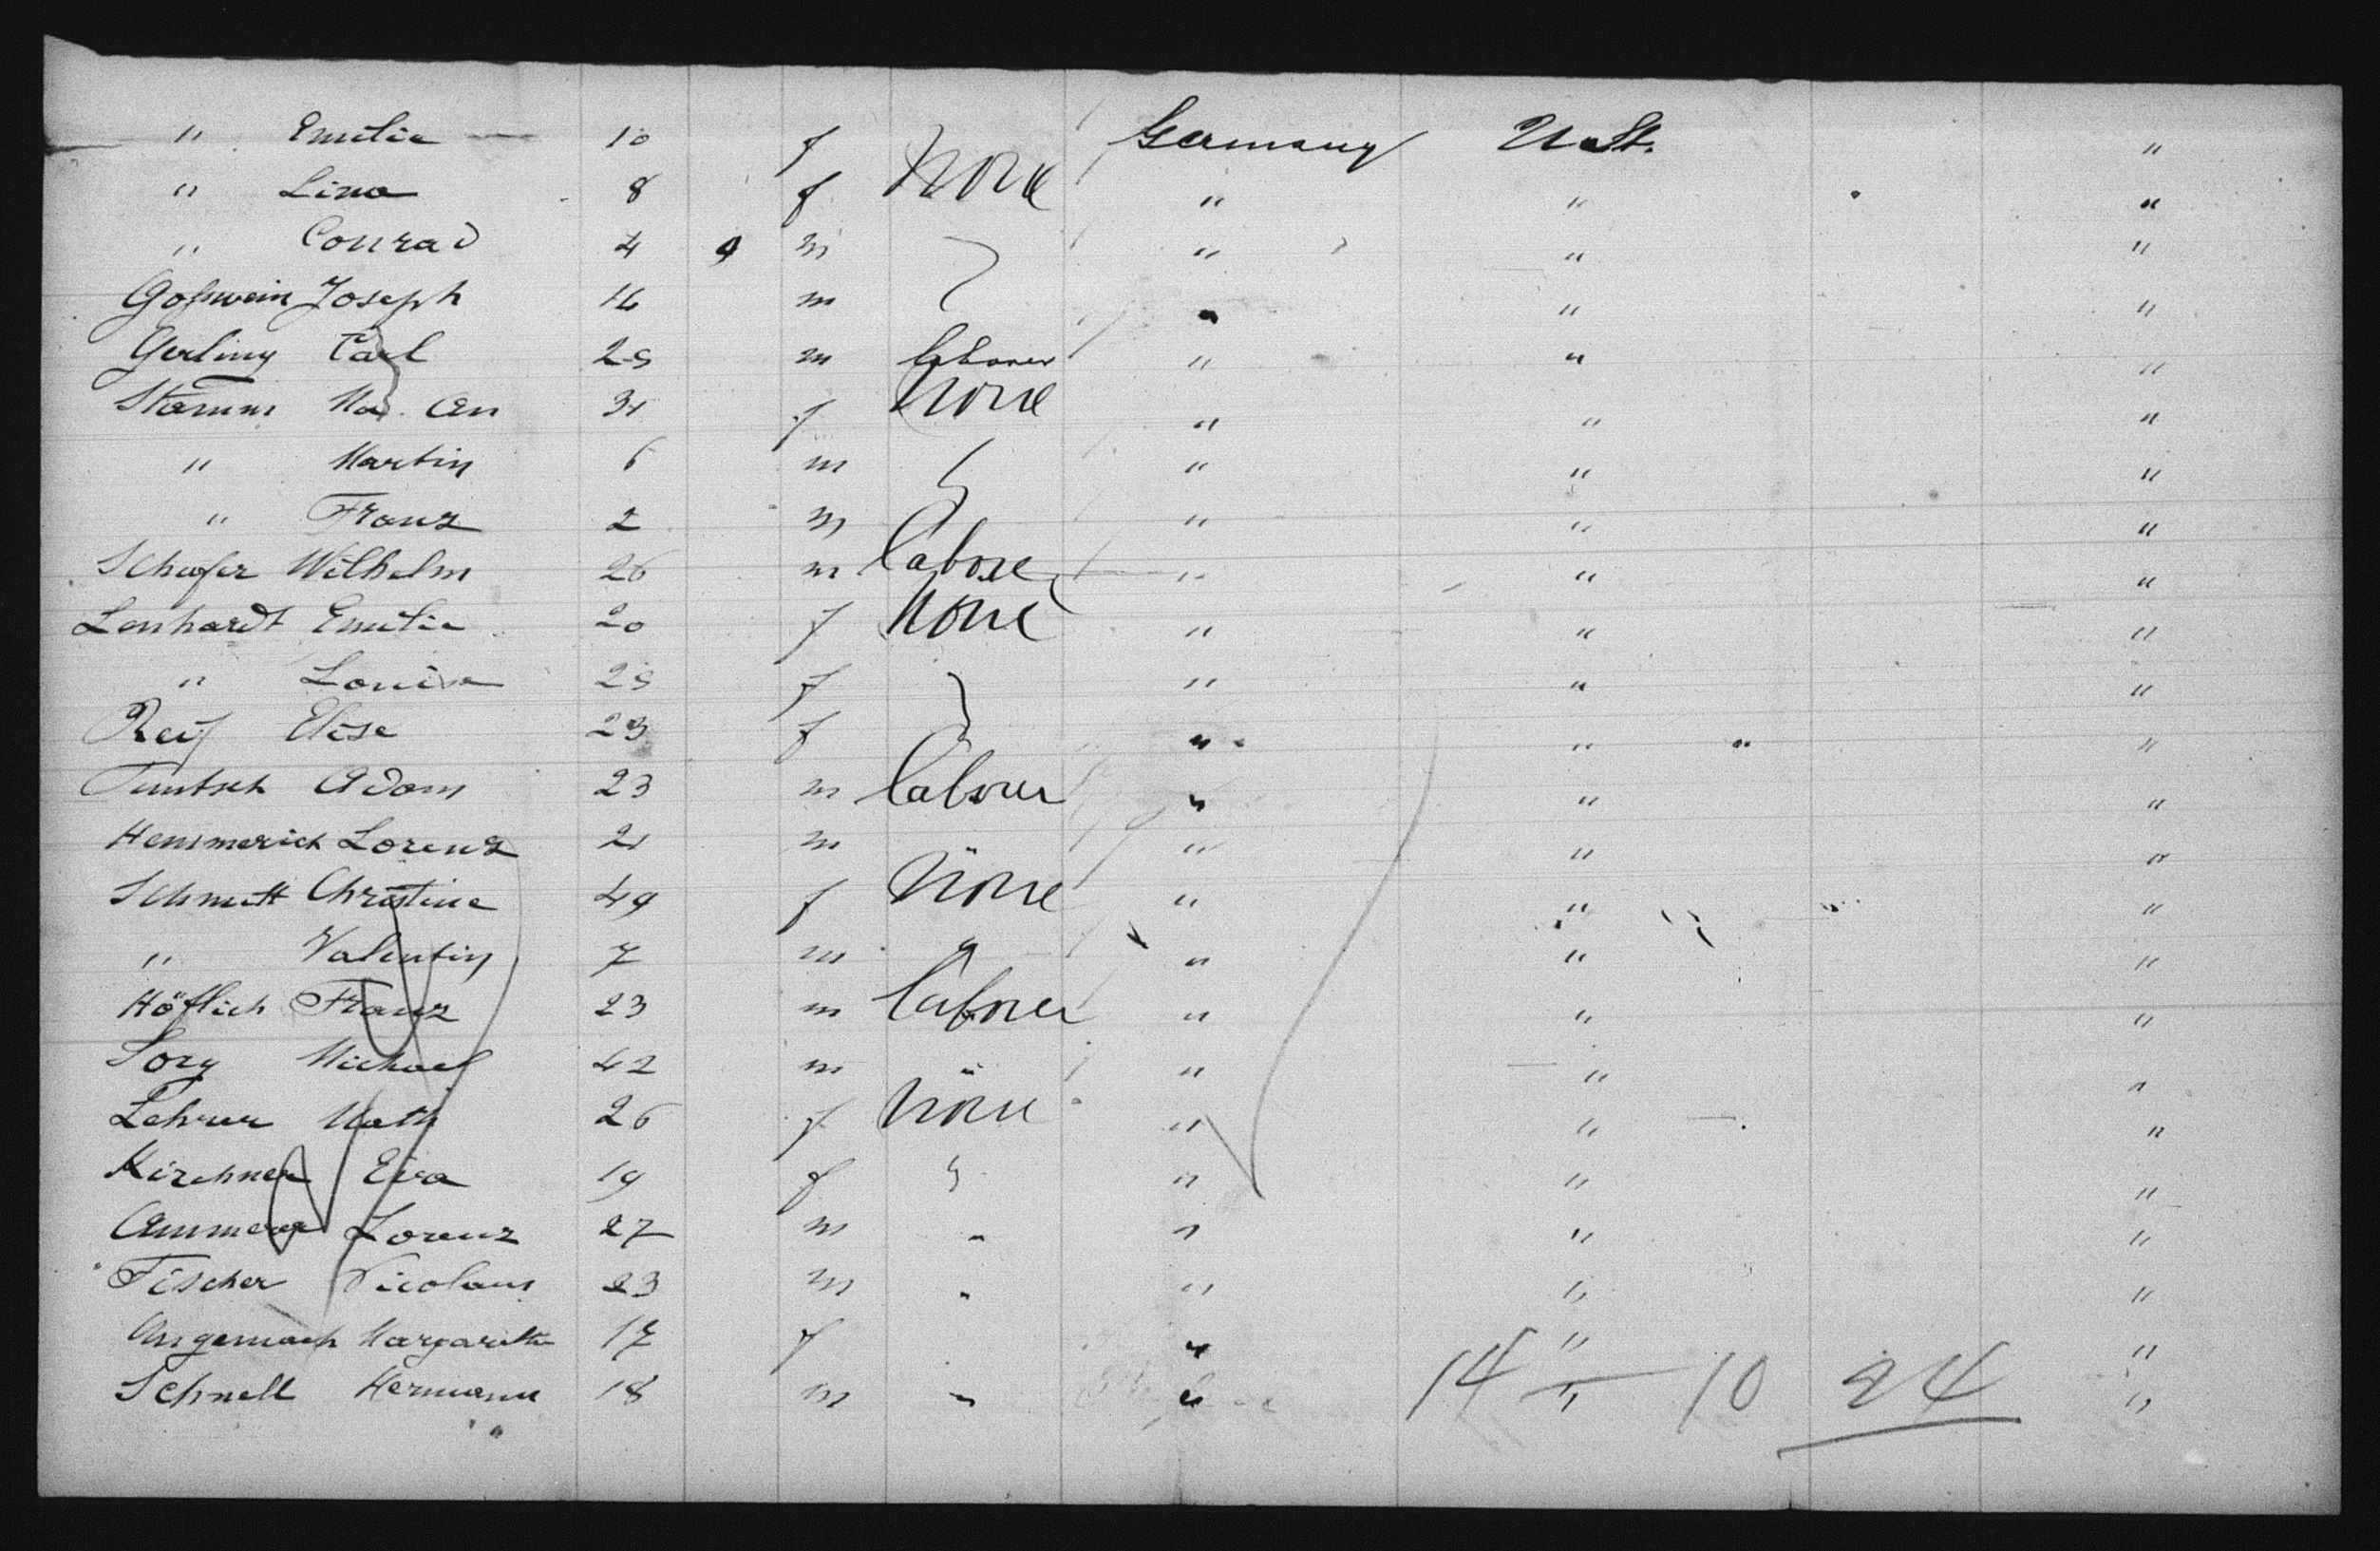 " Emilie — 10 f None Germany U. St. "
" Lina 8 f " " "
" Conrad 4 m " " "
Goßwein Joseph 14 m " " "
Gerling Carl 25 m laborer " " "
Stamm Ma. An 31 f None " " "
" Martin 6 m " " "
" Franz 2 m " " "
Schäfer Wilhelm 26 m laborer " " "
Lenhardt Emilie 20 f None " " "
" Louise 25 f " " "
Reif Elise 23 f " " "
Adam 23 m laborer " " "
Hemmerich Lorenz 21 m " " " "
Schmitt Christine 49 f None " " "
" Valentin 7 m " " " "
Höflich Franz 23 m laborer " " "
Michael 42 m " " " "
Lehrer Math 26 f None " " "
Kirchner Eva 19 f " " " "
Ammerer Lorenz 27 m " " " "
Fischer Nicolaus 23 m " " " "
Angemach Margarethe 17 f " " "
Schnell Hermann 18 m " " " "
14 — 10 24